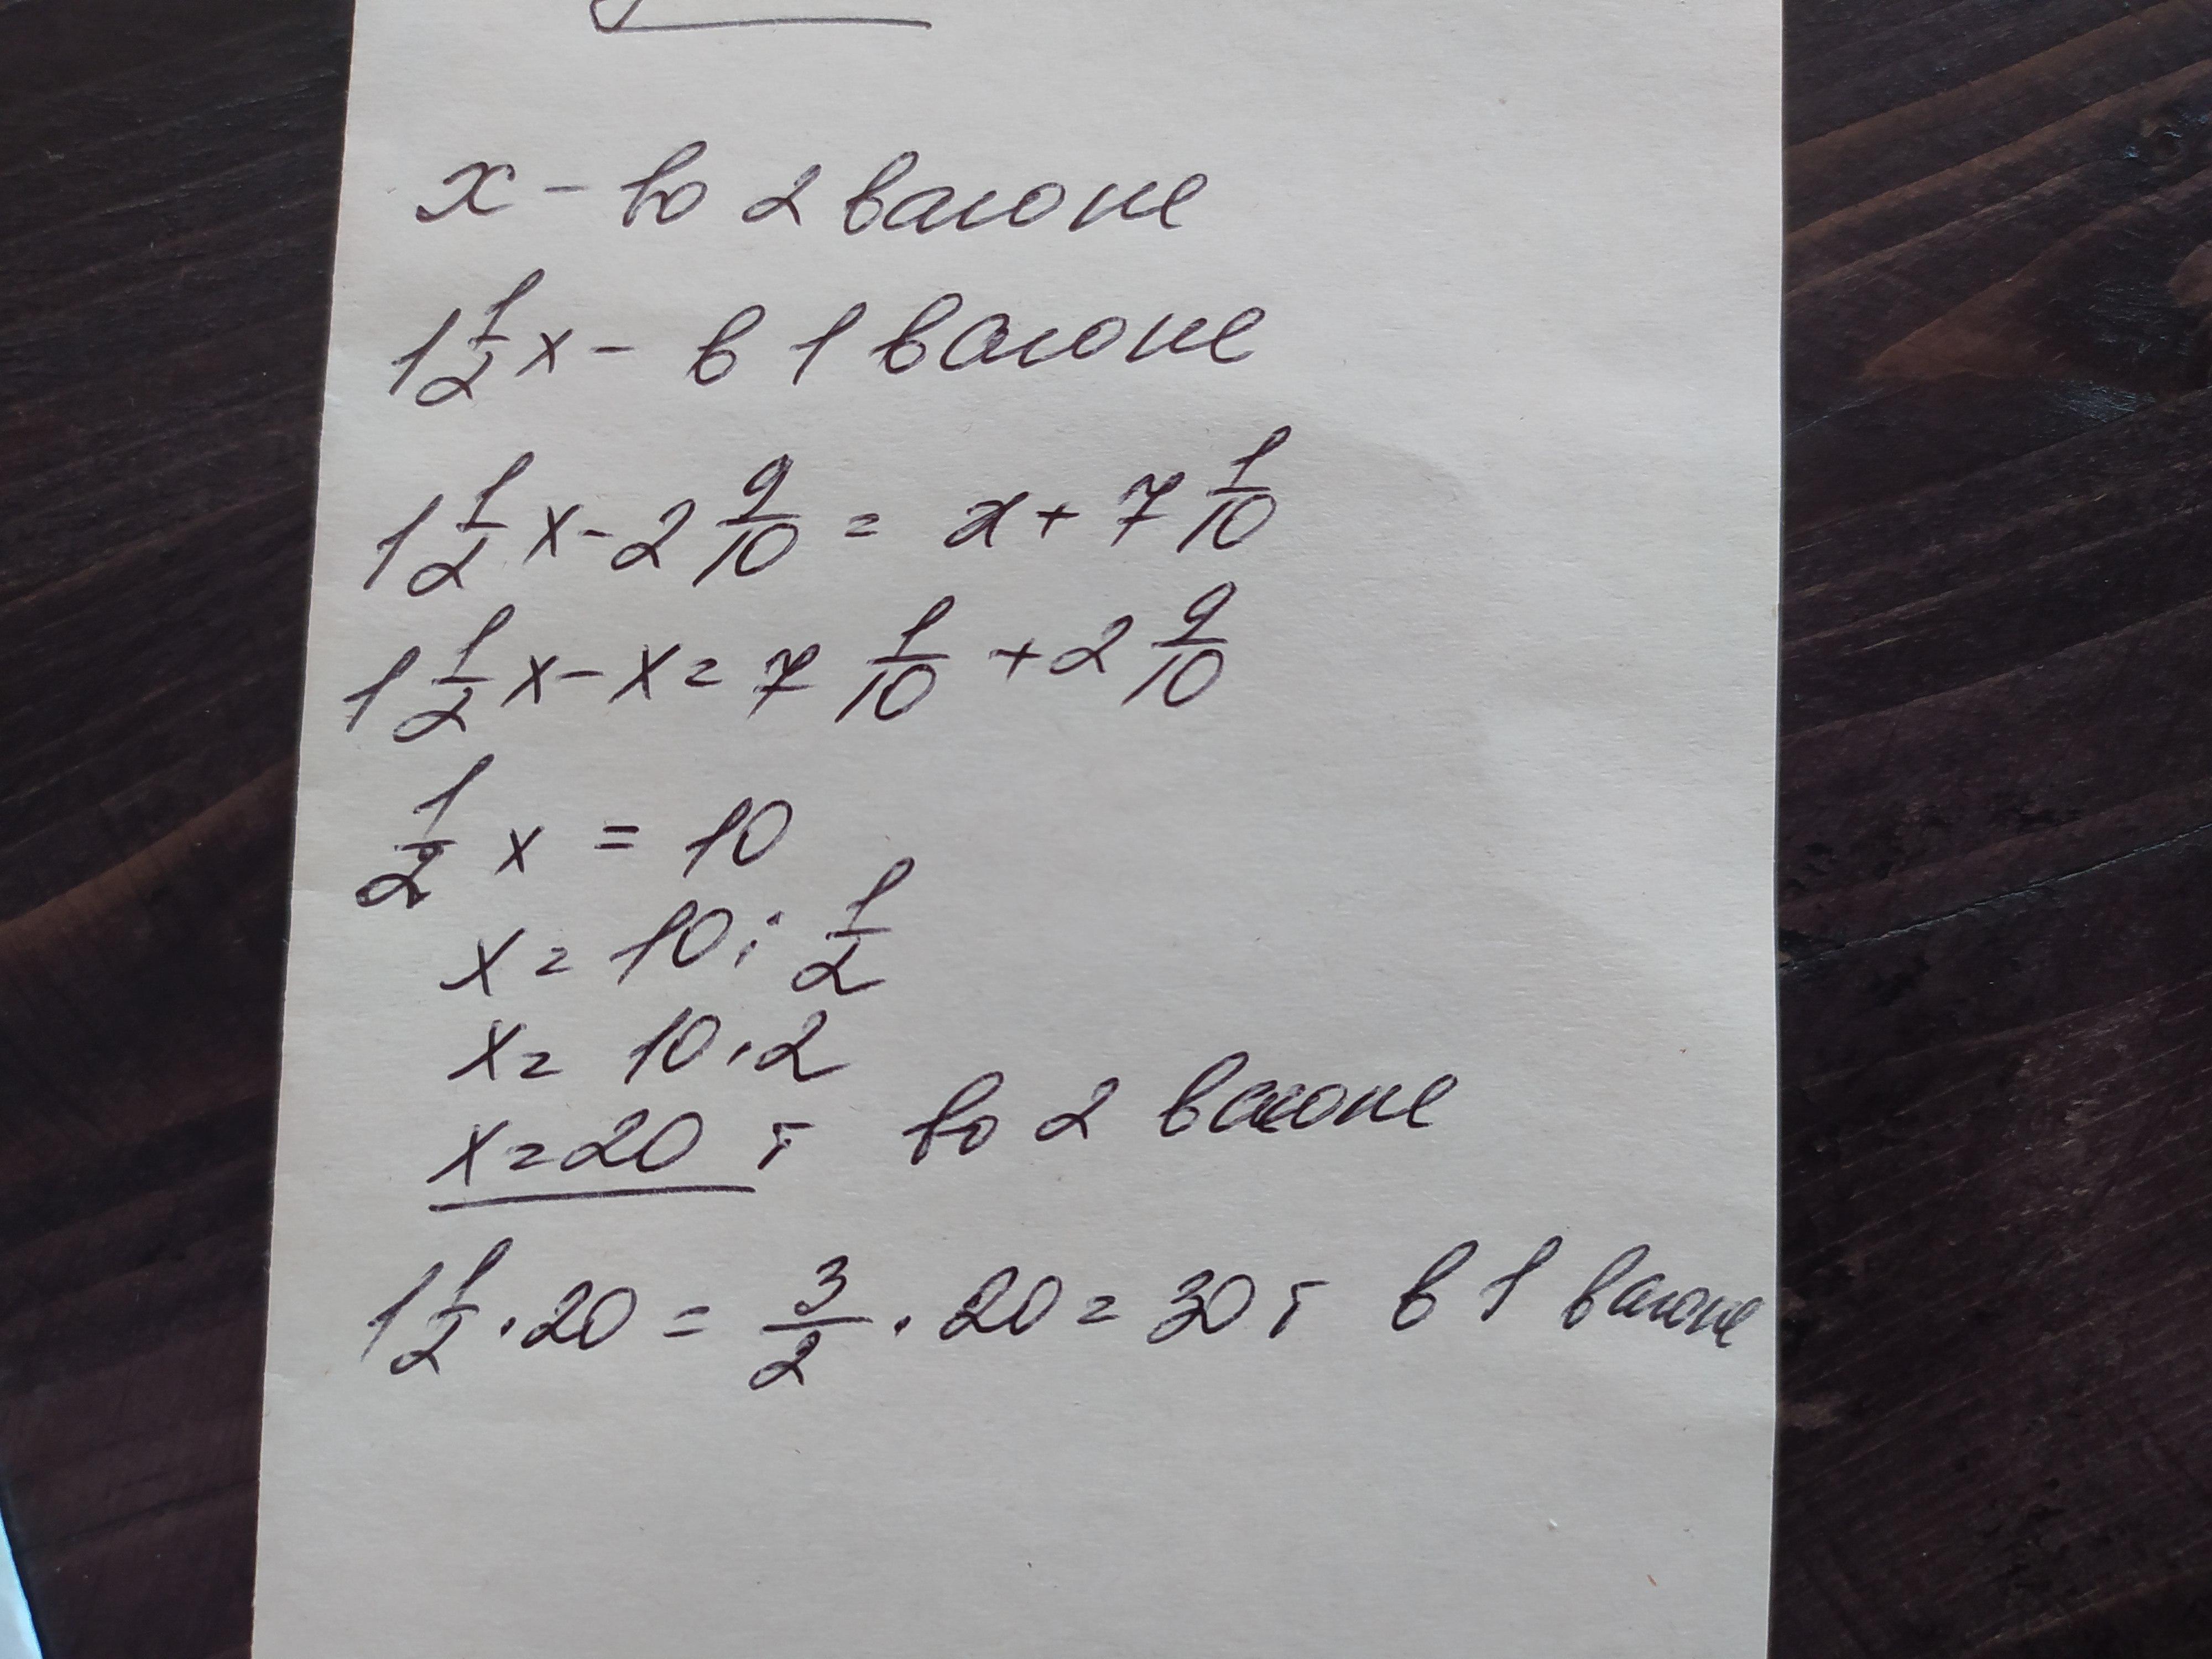 x - во 2 вагоне
1 1/2 x - в 1 вагоне
1 1/2 x - 2 9/10 = x + 7 1/10
1 1/2 x - x = 7 1/10 + 2 9/10
1/2 x = 10
x = 10 : 1/2
x = 10 · 2
x = 20 т во 2 вагоне
1 1/2 · 20 = 3/2 · 20 = 30 т в 1 вагоне